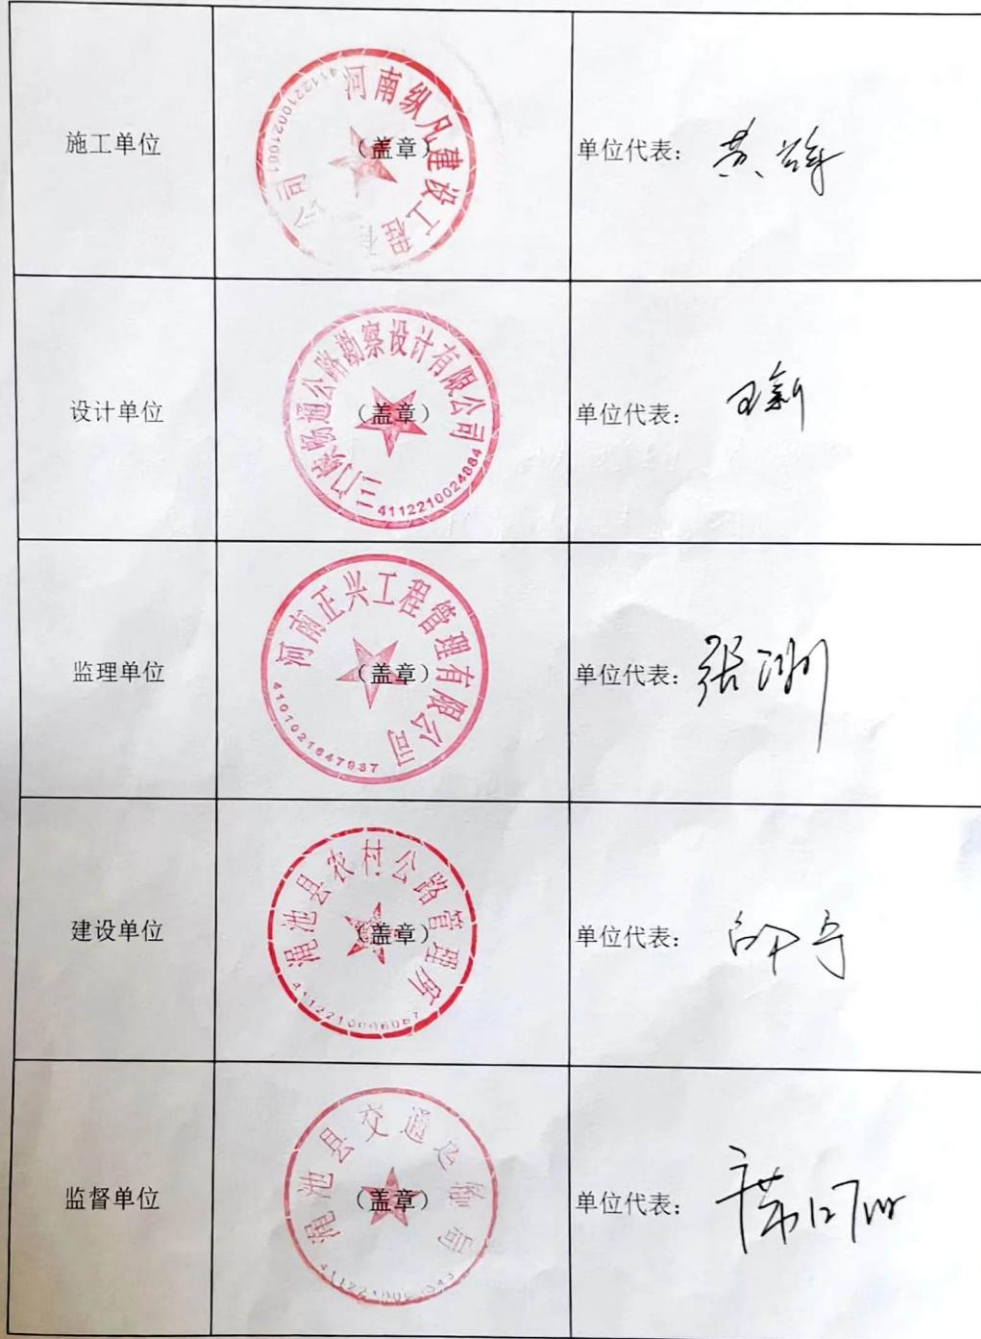 施工单位
河南纵凡建设工程有 公司
(盖章)
单位代表:
设计单位
三门峡畅通公路勘察设计有限公司
4112210024864
(盖章)
单位代表:
监理单位
河南正兴工程管理有限公司
4101021647937
(盖章)
单位代表:
建设单位
渑池县农村公路管理所
(盖章)
单位代表:
监督单位
渑池县交通运输局
(盖章)
单位代表: